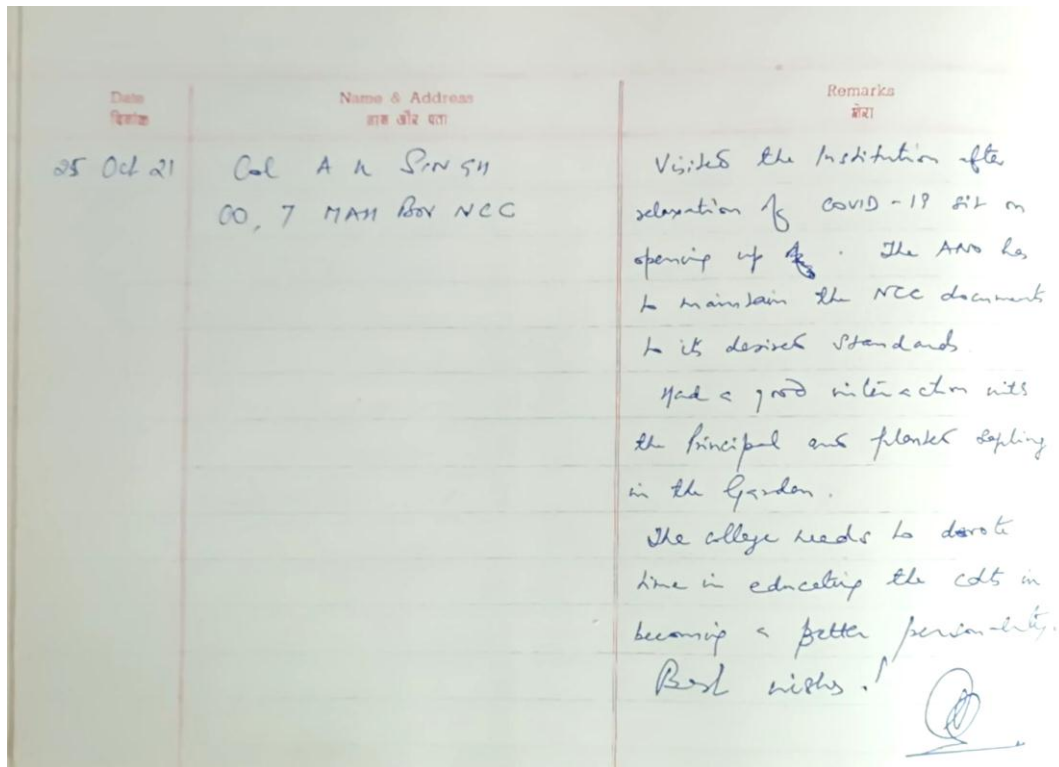 Date
दिनांक
Name & Address
नाम और पता
Remarks
शेरा
25 Oct 21
Col A K SINGH
CO, 7 MAH BN NCC
Visited the Institution after
relaxation of COVID-19 sit on
opening up. The ANO has
to maintain the NCC documents
to its desired standards.
Had a good interaction with
the Principal and planted sapling
in the Garden.
The college needs to devote
time in educating the cdts in
becoming a better personality.
Best wishes!